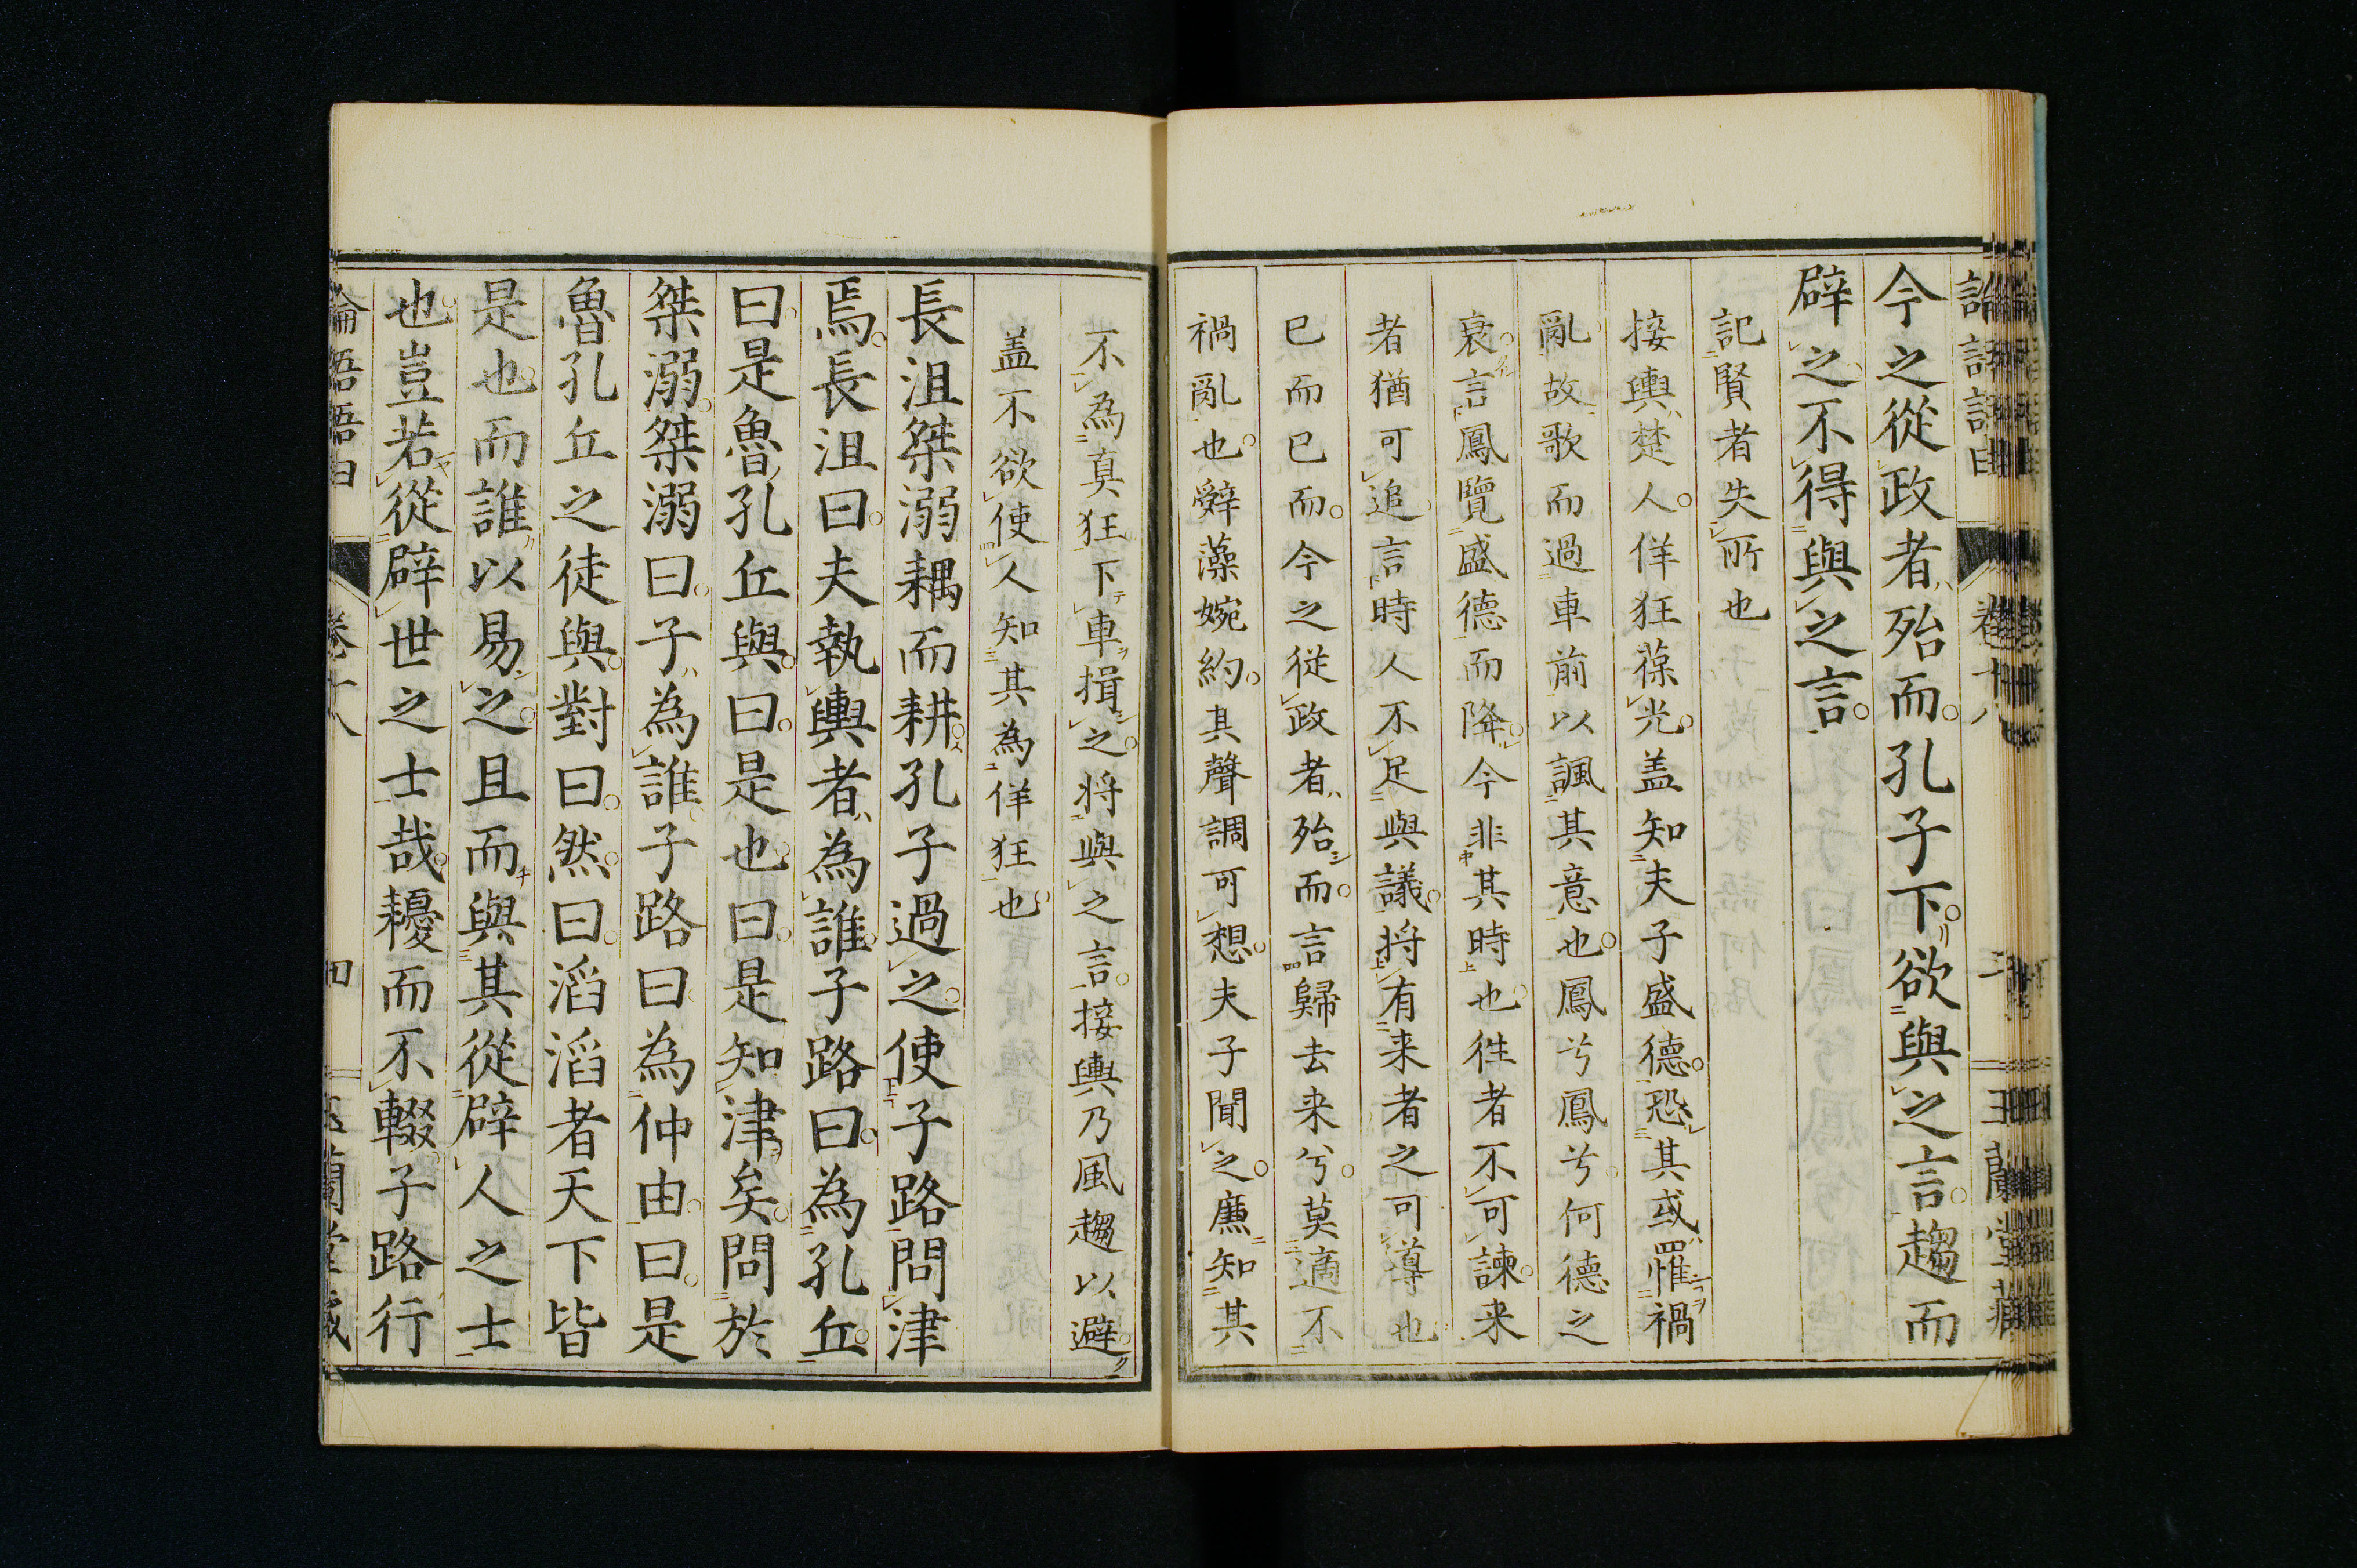 今之從政者殆而孔子下欲與之言趨而
辟之不得與之言
記賢者失所也
接輿楚人佯狂葆光盖知夫子盛德恐其或罹禍
亂故歌而過車前以諷其意也鳳兮鳳兮何德之
衰言鳳覽盛德而降今非其時也徃者不可諫来
者猶可追言時人不足與議将有来者之可導也
已而已而今之従政者殆而言歸去来兮莫適不
禍亂也辭藻婉約其聲調可想夫子聞之廉知其
不為真狂下車揖之将與之言接輿乃風趨以避
盖不欲使人知其為佯狂也
長沮桀溺耦而耕孔子過之使子路問津
焉長沮曰夫執輿者為誰子路曰為孔丘
曰是魯孔丘與曰是也曰是知津矣問於
桀溺桀溺曰子為誰子路曰為仲由曰是
魯孔丘之徒與對曰然曰滔滔者天下皆
是也而誰以易之且而與其從辟人之士
也豈若從辟世之士哉耰而不輟子路行
卷十八
四